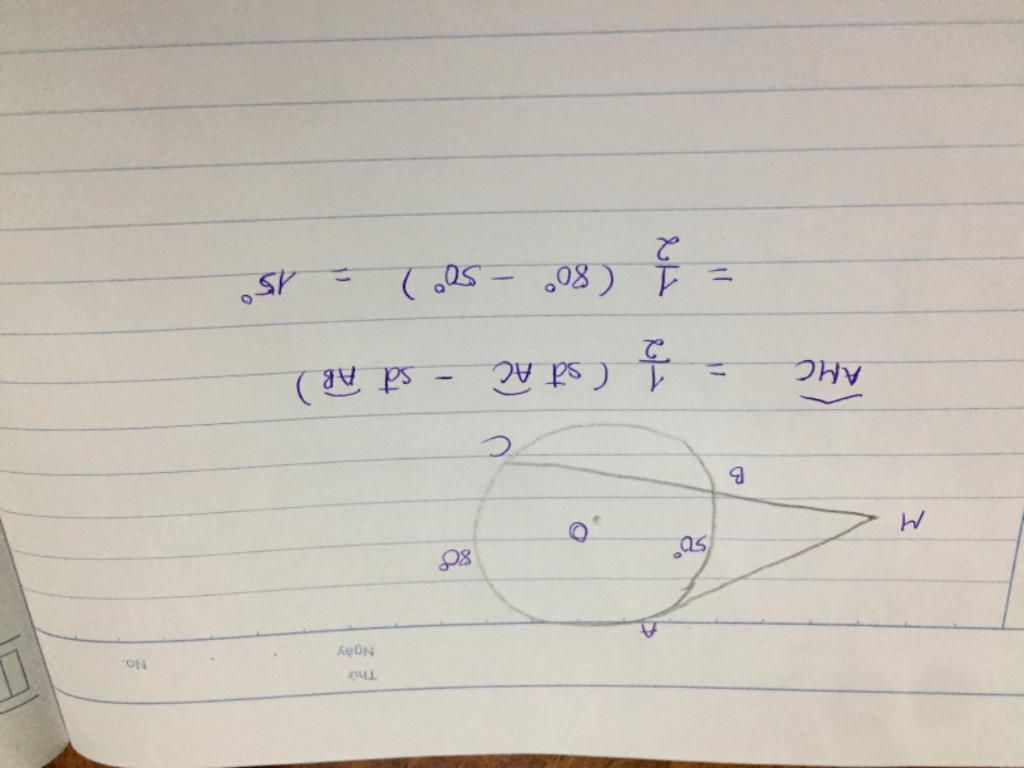 Thứ
Ngày
No.
A
M
50°
80°
O
B
C
AMC = 1/2 (sđ AC - sđ AB)
= 1/2 (80° - 50°) = 15°